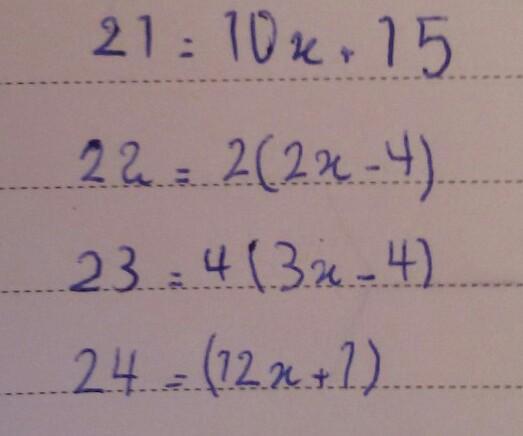 21 = 10x + 15
22 = 2(2x - 4)
23 = 4(3x - 4)
24 = (12x + 1)